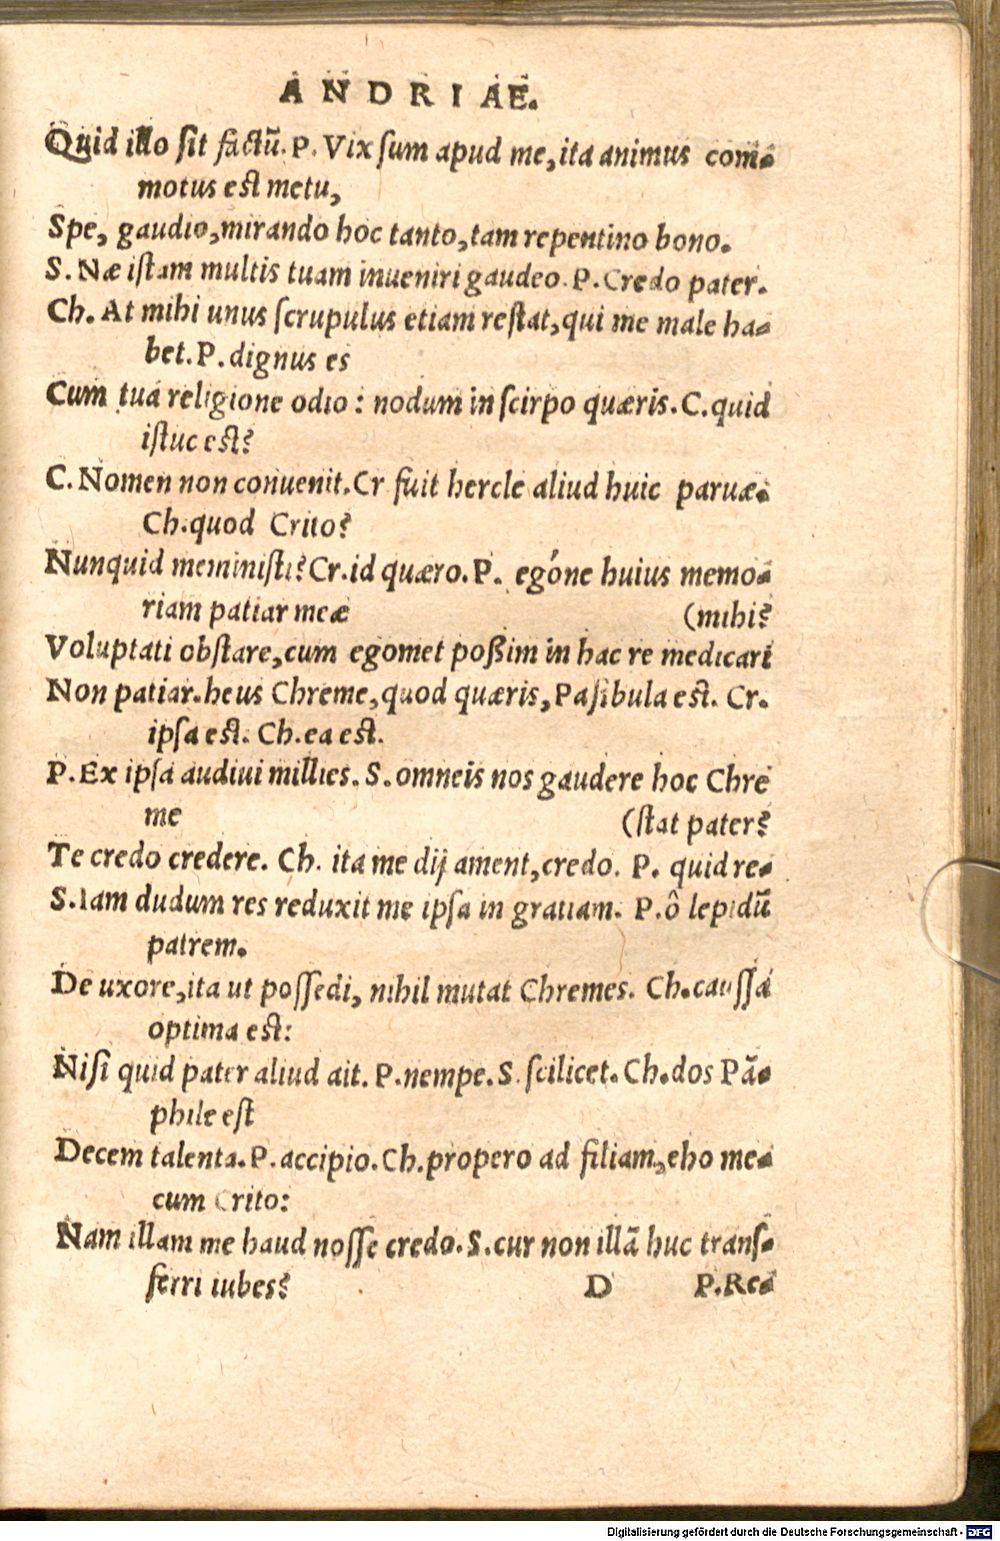 ANDRIAE.
Quid illo sit factū. P. Vix sum apud me, ita animus com-
motus est metu,
Spe, gaudio, mirando hoc tanto, tam repentino bono.
S. Næ istam multis tuam inueniri gaudeo. P. Credo pater.
Ch. At mihi unus scrupulus etiam restat, qui me male ha-
bet. P. dignus es
Cum tua religione odio: nodum in scirpo quæris. C. quid
istuc est?
C. Nomen non conuenit. Cr fuit hercle aliud huic paruæ.
Ch. quod Crito?
Nunquid meministi? Cr. id quæro. P. egóne huius memo-
riam patiar meæ (mihi?
Voluptati obstare, cum egomet poßim in hac re medicari
Non patiar. heus Chreme, quod quæris, Pasibula est. Cr.
ipsa est. Ch. ea est.
P. Ex ipsa audiui millies. S. omneis nos gaudere hoc Chre
me (stat pater?
Te credo credere. Ch. ita me dij ament, credo. P. quid re-
S. Iam dudum res reduxit me ipsa in gratiam. P. ô lepidū
patrem.
De uxore, ita ut possedi, nihil mutat Chremes. Ch. caussa
optima est:
Nisi quid pater aliud ait. P. nempe. S. scilicet. Ch. dos Pā-
phile est
Decem talenta. P. accipio. Ch. propero ad filiam, eho me-
cum Crito:
Nam illam me haud nosse credo. S. cur non illā huc trans-
ferri iubes? D P. Re-
Digitalisierung gefördert durch die Deutsche Forschungsgemeinschaft - DFG